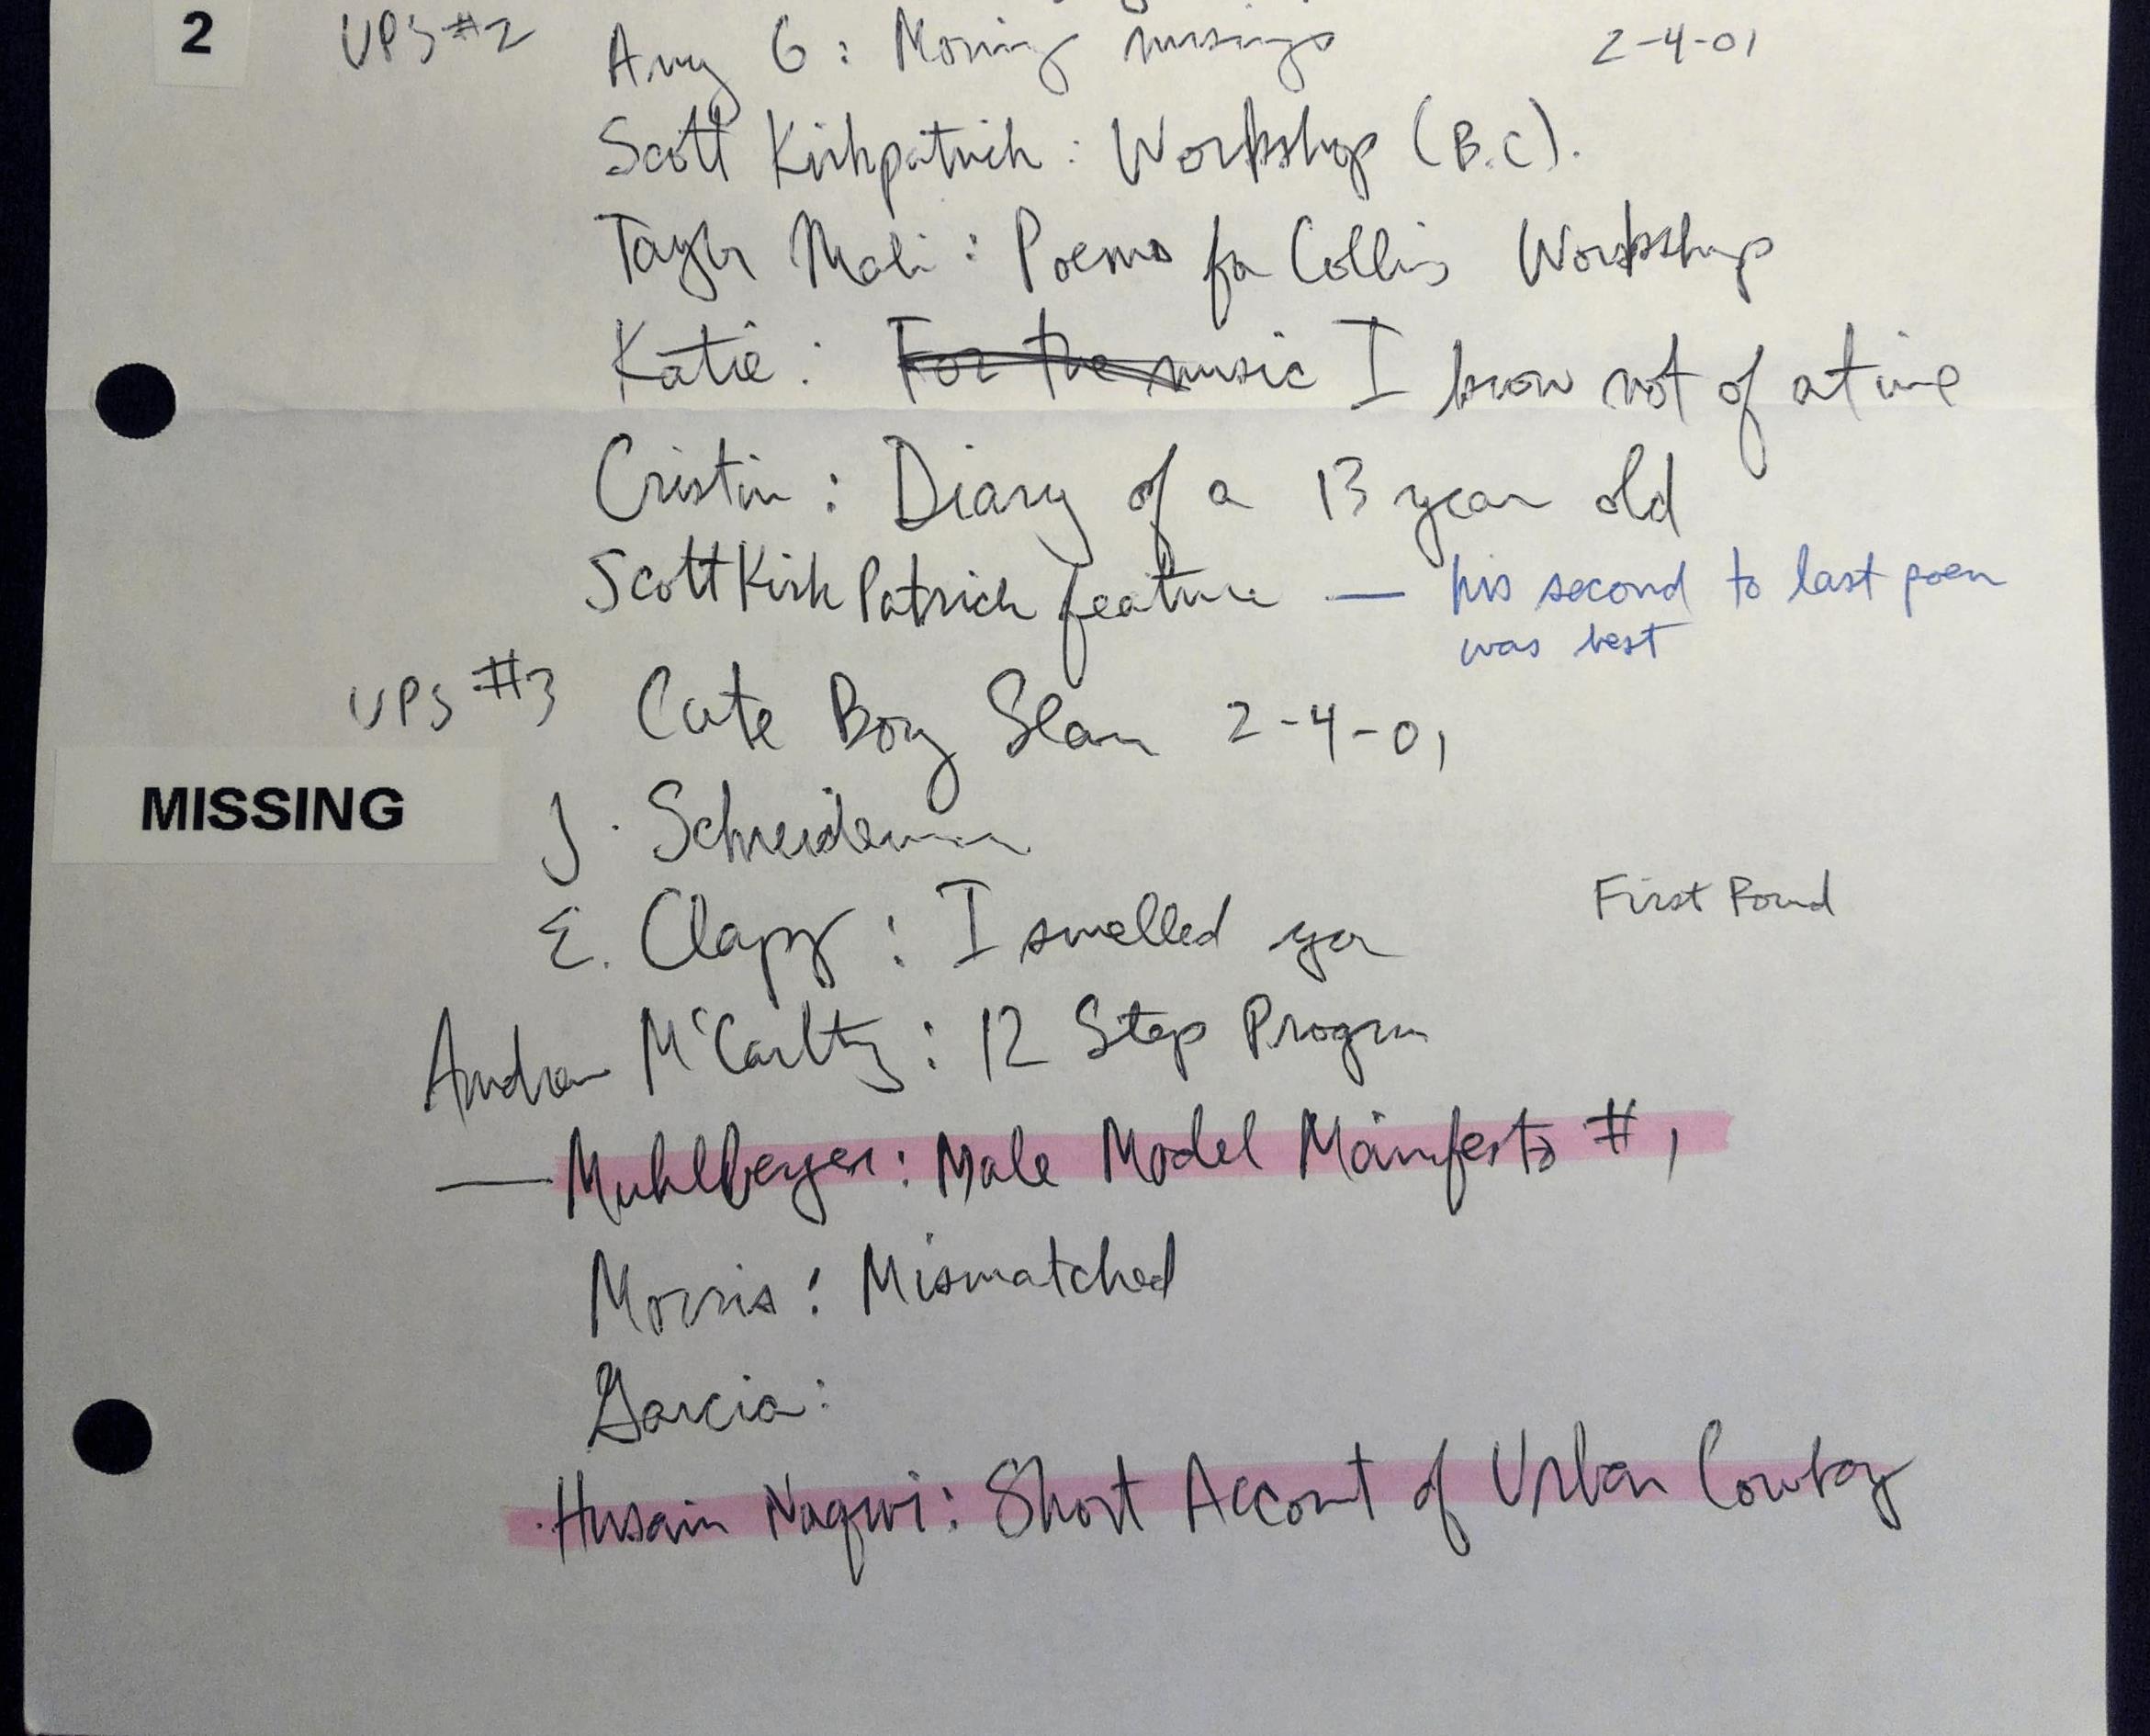 2 UPS #2 Amy G: Morning musings 2-4-01
Scott Kirkpatrick: Workshop (B.C).
Taylor Mali: Poems for Collins Workshop
Katie: For the music I know not of a time
Cristin: Diary of a 13 year old
Scott KirkPatrick feature — his second to last poem
was best
UPS #3 Cute Boy Slam 2-4-01
MISSING
J. Schneiderman
First Round
E. Clapp: I smelled you
Andrew McCarthy: 12 Step Program
— Muhlberger: Male Model Manifesto #1
Morris: Mismatched
Garcia:
Husain Naqvi: Short Account of Urban Cowboy